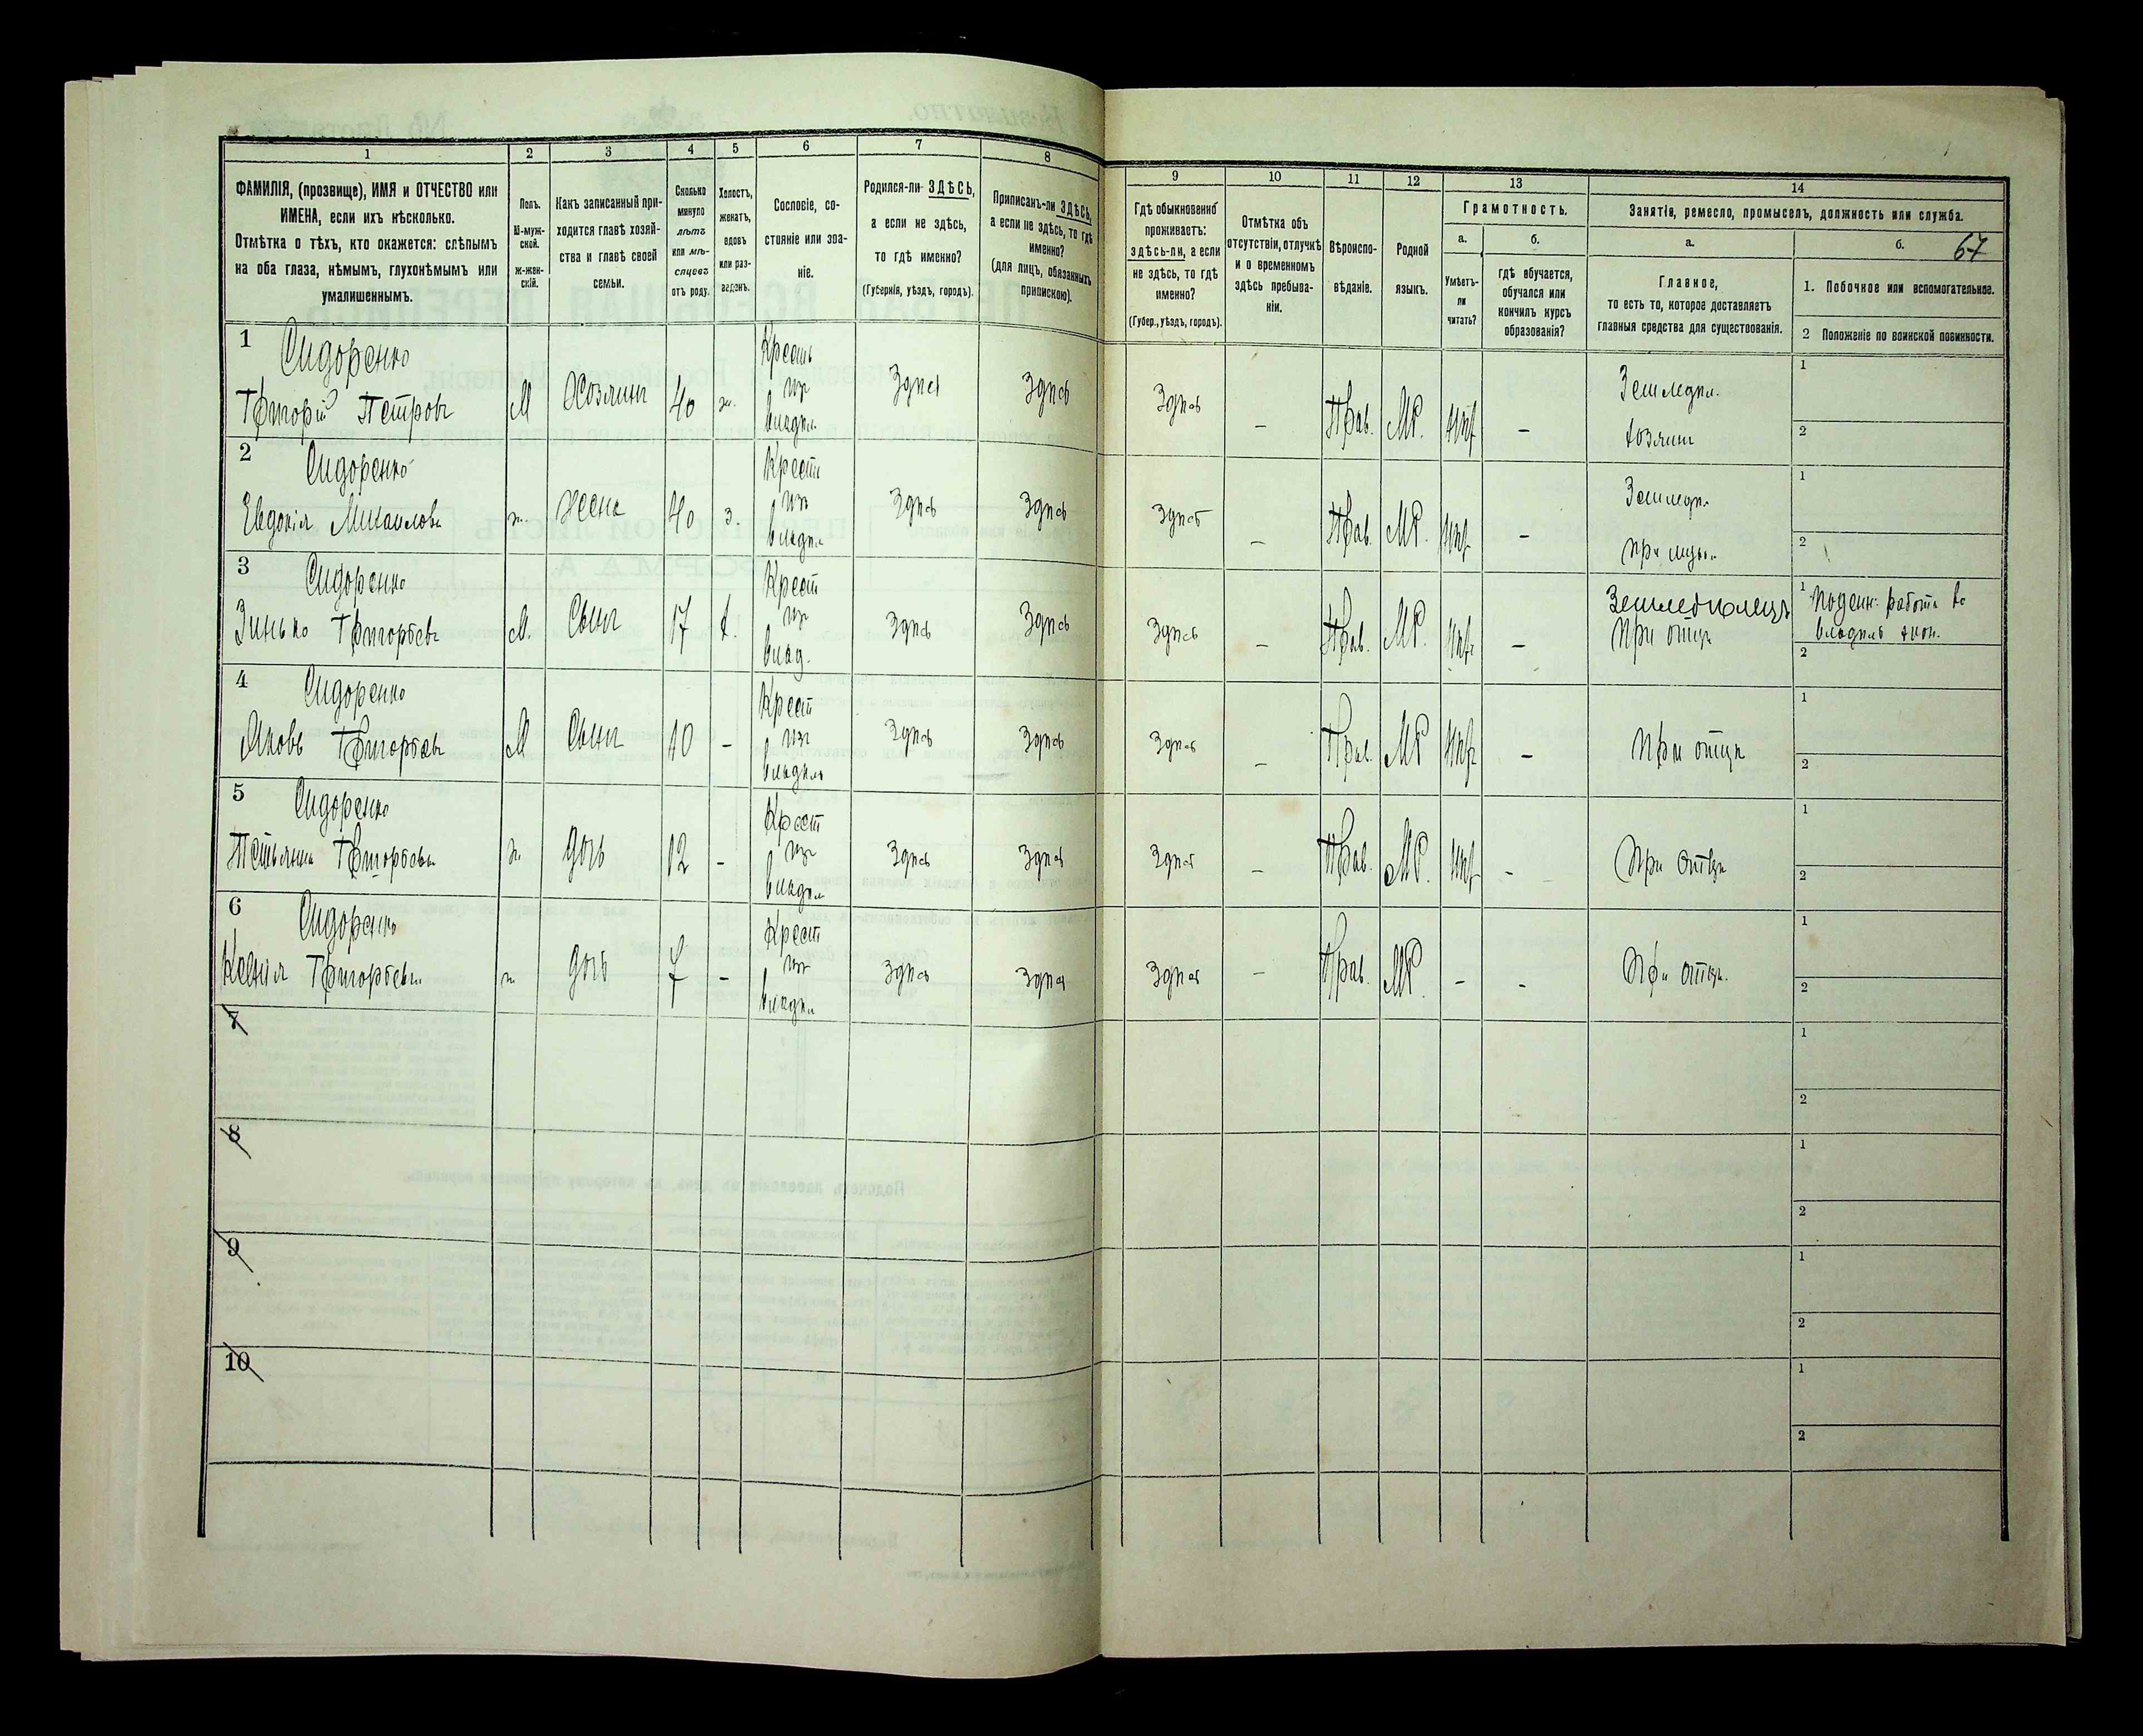 1
2
3
4
5
6
7
8
ФАМИЛІЯ, (прозвище), ИМЯ и ОТЧЕСТВО или
ИМЕНА, если ихъ нѣсколько.
Отмѣтка о тѣхъ, кто окажется: слѣпымъ
на оба глаза, нѣмымъ, глухонѣмымъ или
умалишеннымъ.
Полъ.
М-муж-
ской.
ж-жен-
скій.
Какъ записанный при-
ходится главѣ хозяй-
ства и главѣ своей
семьи.
Сколько
минуло
лѣтъ
или мѣ-
сяцевъ
отъ роду.
Холостъ,
женатъ,
вдовъ
или раз-
веденъ.
Сословіе, со-
стояніе или зва-
ніе.
Родился-ли ЗДѢСЬ,
а если не здѣсь,
то гдѣ именно?
(Губернія, уѣздъ, городъ).
Приписанъ-ли ЗДѢСЬ,
а если не здѣсь, то гдѣ
именно?
(для лицъ, обязанныхъ
припискою).
9
10
11
12
13
14
Гдѣ обыкновенно
проживаетъ:
здѣсь-ли, а если
не здѣсь, то гдѣ
именно?
(Губер., уѣздъ, городъ).
Отмѣтка объ
отсутствіи, отлучкѣ
и о временномъ
здѣсь пребыва-
ніи.
Вѣроиспо-
вѣданіе.
Родной
языкъ.
Грамотность.
а.
б.
Умѣетъ-
ли
читать?
гдѣ обучается,
обучался или
кончилъ курсъ
образованія?
Занятія, ремесло, промыселъ, должность или служба.
а.
б.
67
Главное,
то есть то, которое доставляетъ
главныя средства для существованія.
1. Побочное или вспомогательное.
2 Положеніе по воинской повинности.
1 Сидоренко
Григорій Петровъ
М
Хозяинъ
40
ж.
Крестьь
изъ
владѣл.
Здѣсь
Здѣсь
Здѣсь
–
Прав.
МР.
нѣт
–
Земледѣл.
хозяинъ
1
2
2 Сидоренко
Евдокія Михаилова
ж.
Жена
40
з.
Крест
изъ
владѣл
Здѣсь
Здѣсь
Здѣсь
–
Прав.
МР.
нѣт
–
Земледѣл.
при мужѣ.
1
2
3 Сидоренко
Зинько Григорьевъ
М.
Сынъ
17
х.
Крест
изъ
влад.
Здѣсь
Здѣсь
Здѣсь
–
Прав.
МР.
нѣт
–
Земледѣлецъ
при отцѣ
1 Поденн. работы во
владѣль экон.
2
4 Сидоренко
Яковъ Григорьевъ
М
Сынъ
10
–
Крест
изъ
владѣль
Здѣсь
Здѣсь
Здѣсь
–
Прав.
МР
нѣт
–
При отцѣ
1
2
5 Сидоренко
Тетьяна Григорьева
ж.
дочь
12
–
Крест
изъ
владѣл
Здѣсь
Здѣсь
Здѣсь
–
Прав.
МР.
нѣт
–
При отцѣ
1
2
6 Сидоренко
Ксенія Григорьева
ж.
дочь
7
–
Крест
изъ
владѣл
Здѣсь
Здѣсь
Здѣсь
–
Прав.
МР.
–
–
При отцѣ.
1
2
7
1
2
8
1
2
9
1
2
10
1
2